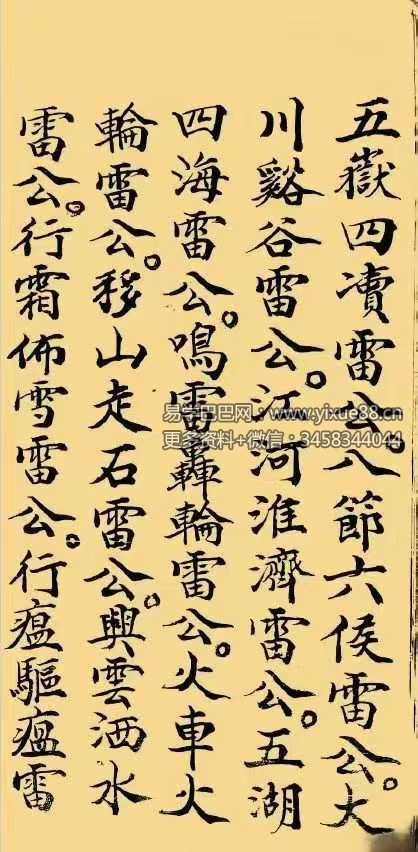 五嶽四瀆雷公。八節六侯雷公。大
川谿谷雷公。江河淮濟雷公。五湖
四海雷公。鳴雷轟輪雷公。火車火
輪雷公。移山走石雷公。興雲洒水
雷公。行霜佈雪雷公。行瘟驅瘟雷
易学巴巴网：www.yixue88.cn
更多资料+微信：3458344044